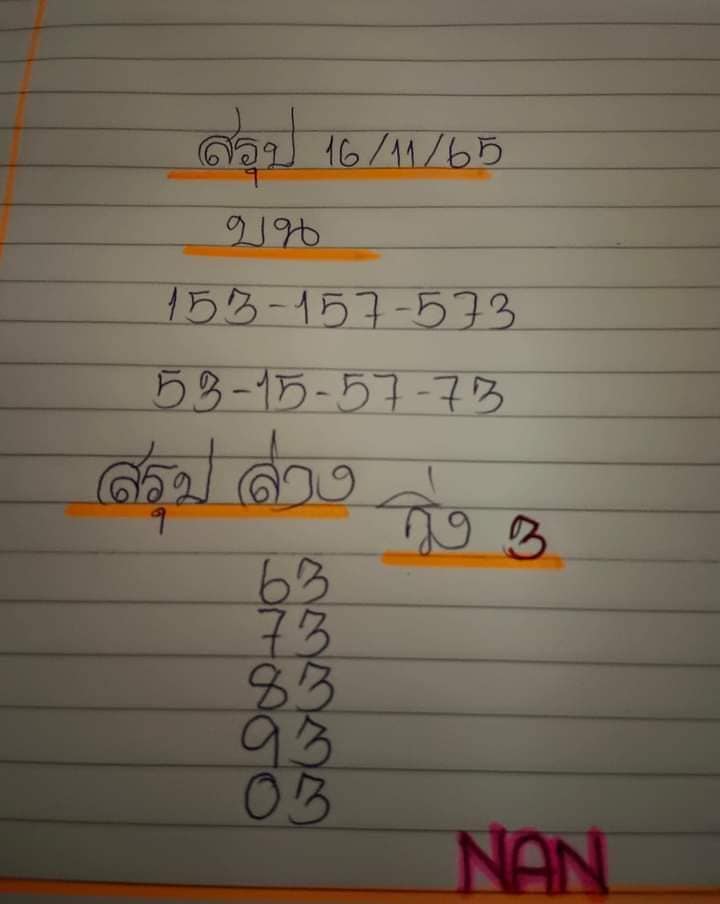 สรุป 16/11/65
บน
153-157-573
53-15-57-73
สรุป ล่าง
วิ่ง 3
63
73
83
93
03
NAN